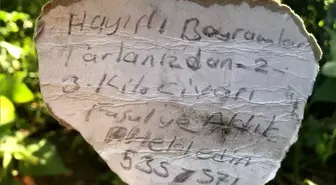 Hayırlı Bayramlar
Tarlanızdan - 2 -
3 - Kilo Civarı
Fasulye Aldık
Helledin
535 571